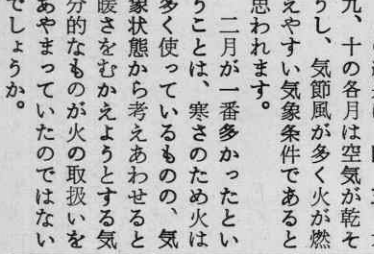 九、十の各月は空気が乾そ
うし、気節風が多く火が燃
えやすい気象条件であると
思われます。
二月が一番多かったとい
うことは、寒さのため火は
多く使っているものの、気
象状態から考えあわせると
暖さをむかえようとする気
分的なものが火の取扱いを
あやまっていたのではない
でしょうか。